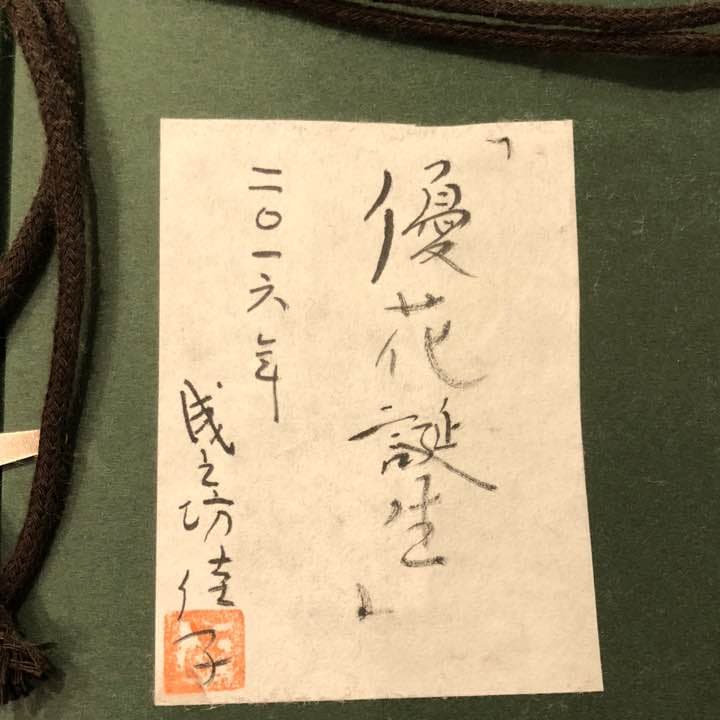 「優花誕生」
二〇一六年
成之坊佳子